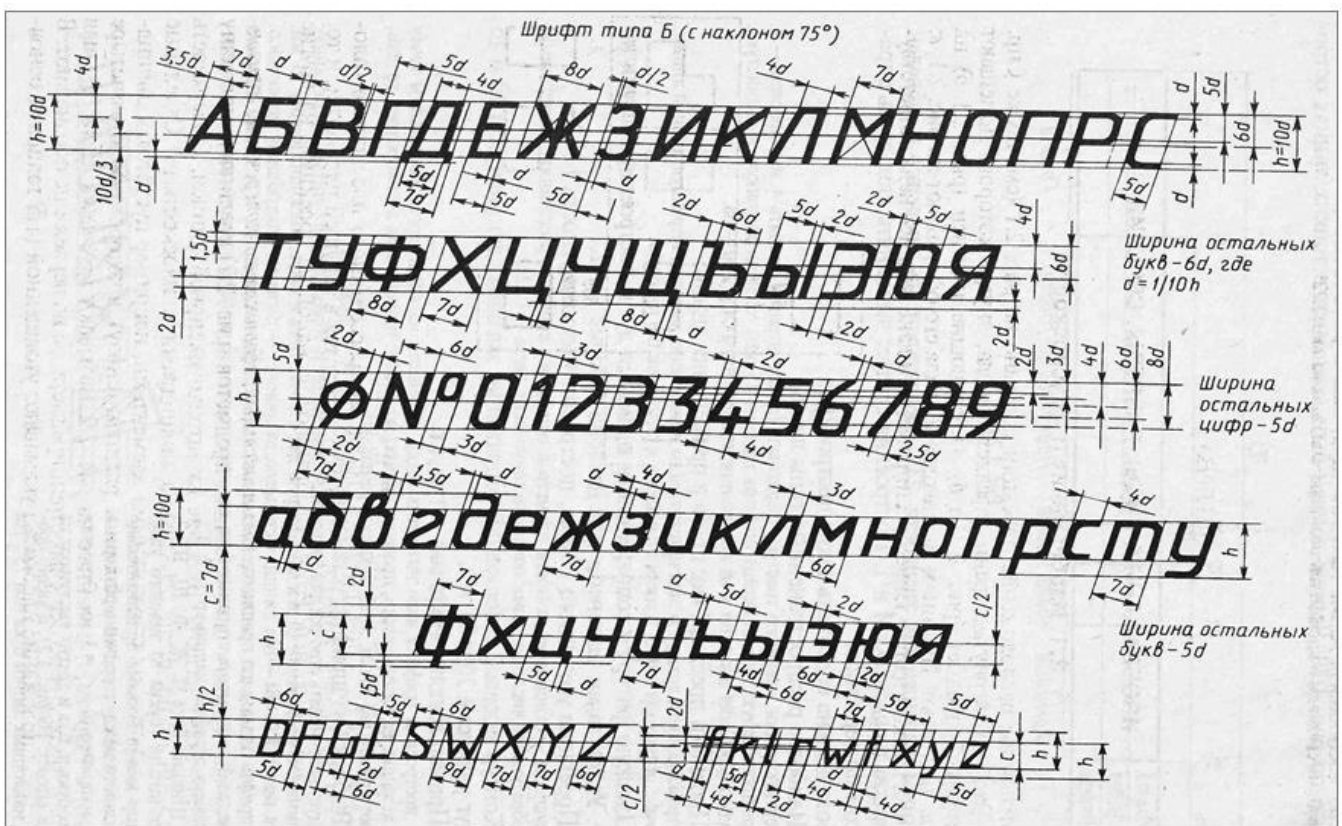 Шрифт типа Б (с наклоном 75°)
4d 3,5d 7d d d/2 5d 4d 8d d/2 4d 7d d 5d
h=10d АБВГДЕЖЗИКЛМНОПРС 6d h=10d
10d/3 d 5d 7d d 5d 5d d d 5d
1,5d 2d 6d 5d 2d 2d 5d 4d 6d
ТУФХЦЧЩЪЫЭЮЯ
Ширина остальных
букв – 6d, где
d = 1/10 h
2d 8d 7d d 8d d 2d 2d
5d 2d 6d 3d 2d d 2d 3d 4d 6d 8d
h Ø№01233456789
Ширина
остальных
цифр – 5d
2d 7d 3d 4d 2,5d
h=10d 1,5d d d 4d 3d 4d
абвгдежзиклмнопрсту h
c=7d d 7d 6d 7d
2d 7d d 5d 2d c/2
h c фхцчшъыэюя
Ширина остальных
букв – 5d
15d 5d d 7d 4d 6d 6d 2d
h/2 6d 5d 6d 2d 7d 5d 5d
h DFGLSWXYZ fklrwtxyz c h h
5d 2d 6d 9d 7d 7d 6d c/2 d 4d 5d 2d d 4d 4d 5d